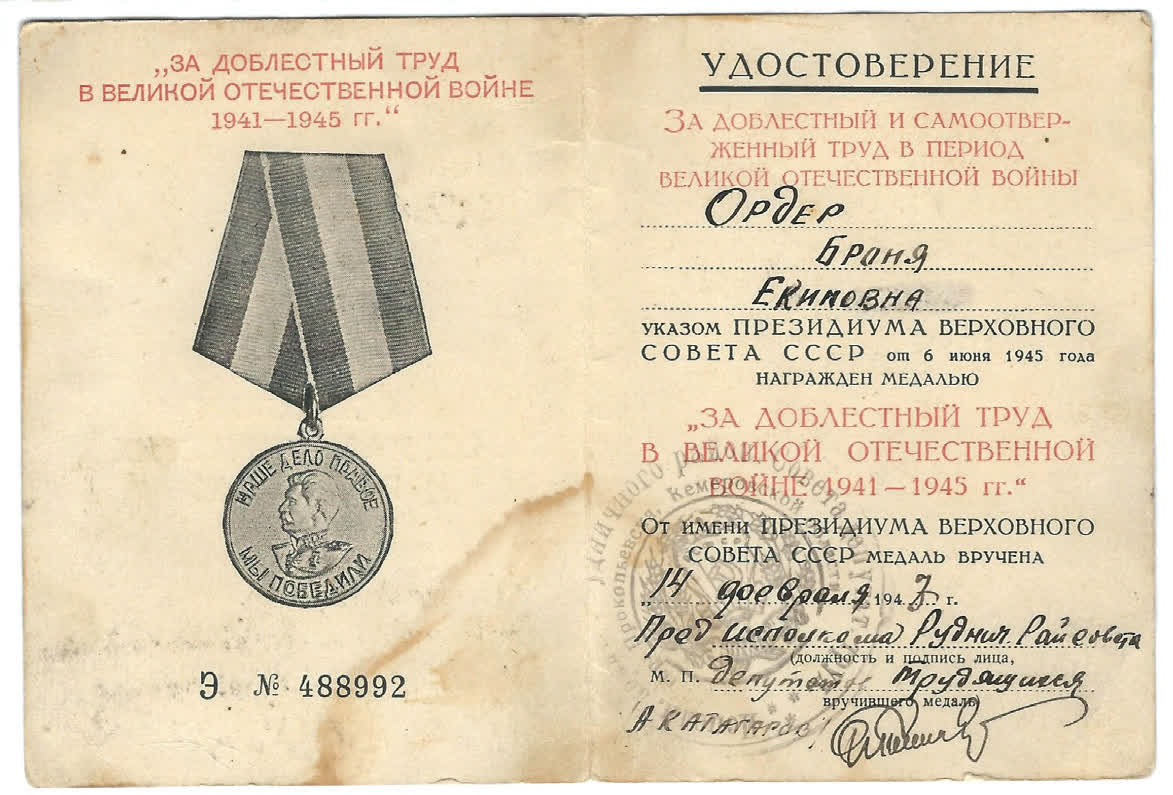 „ЗА ДОБЛЕСТНЫЙ ТРУД
В ВЕЛИКОЙ ОТЕЧЕСТВЕННОЙ ВОЙНЕ
1941—1945 гг.“
НАШЕ ДЕЛО ПРАВОЕ
МЫ ПОБЕДИЛИ
Э № 488992
УДОСТОВЕРЕНИЕ
ЗА ДОБЛЕСТНЫЙ И САМООТВЕР-
ЖЕННЫЙ ТРУД В ПЕРИОД
ВЕЛИКОЙ ОТЕЧЕСТВЕННОЙ ВОЙНЫ
Ордер
Браня
Екиповна
УКАЗОМ ПРЕЗИДИУМА ВЕРХОВНОГО
СОВЕТА СССР от 6 июня 1945 года
НАГРАЖДЕН МЕДАЛЬЮ
„ЗА ДОБЛЕСТНЫЙ ТРУД
В ВЕЛИКОЙ ОТЕЧЕСТВЕННОЙ
ВОЙНЕ 1941—1945 гг.“
ОТ ИМЕНИ ПРЕЗИДИУМА ВЕРХОВНОГО
СОВЕТА СССР МЕДАЛЬ ВРУЧЕНА
„14 февраля 1947 г.
Пред исполкома Руднич. Райсовета
(должность и подпись лица,
М. П. депутатов трудящихся
вручившего медаль)
Кемеровской